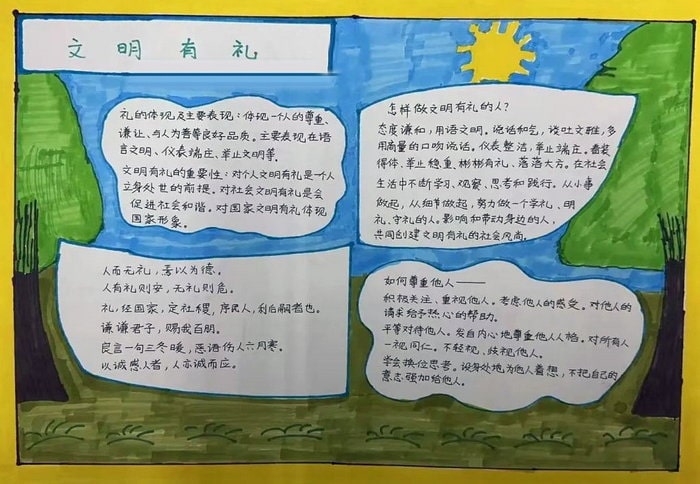 文明有礼
礼的体现及主要表现：体现一个人的尊重、
谦让、与人为善等良好品质。主要表现在语
言文明、仪表端庄、举止文明等。
文明有礼的重要性：对个人文明有礼是一个人
立身处世的前提。对社会文明有礼是会
促进社会和谐。对国家文明有礼体现
国家形象。
怎样做文明有礼的人？
态度谦和，用语文明。说话和气，谈吐文雅，多
用商量的口吻说话。仪表整洁，举止端庄。着装
得体、举止稳重、彬彬有礼、落落大方。在社会
生活中不断学习、观察、思考和践行。从小事
做起，从细节做起，努力做一个学礼、明
礼、守礼的人。影响和带动身边的人、
共同创建文明有礼的社会风尚。
人而无礼，焉以为德。
人有礼则安，无礼则危。
礼，经国家，定社稷，序民人，利后嗣者也。
谦谦君子，赐我百朋。
良言一句三冬暖，恶语伤人六月寒。
以诚感人者，人亦诚而应。
如何尊重他人——
积极关注、重视他人。考虑他人的感受。对他人的
请求给予热心的帮助。
平等对待他人。发自内心地尊重他人人格。对所有人
一视同仁。不轻视、歧视他人。
学会换位思考。设身处地为他人着想，不把自己的
意志强加给他人。